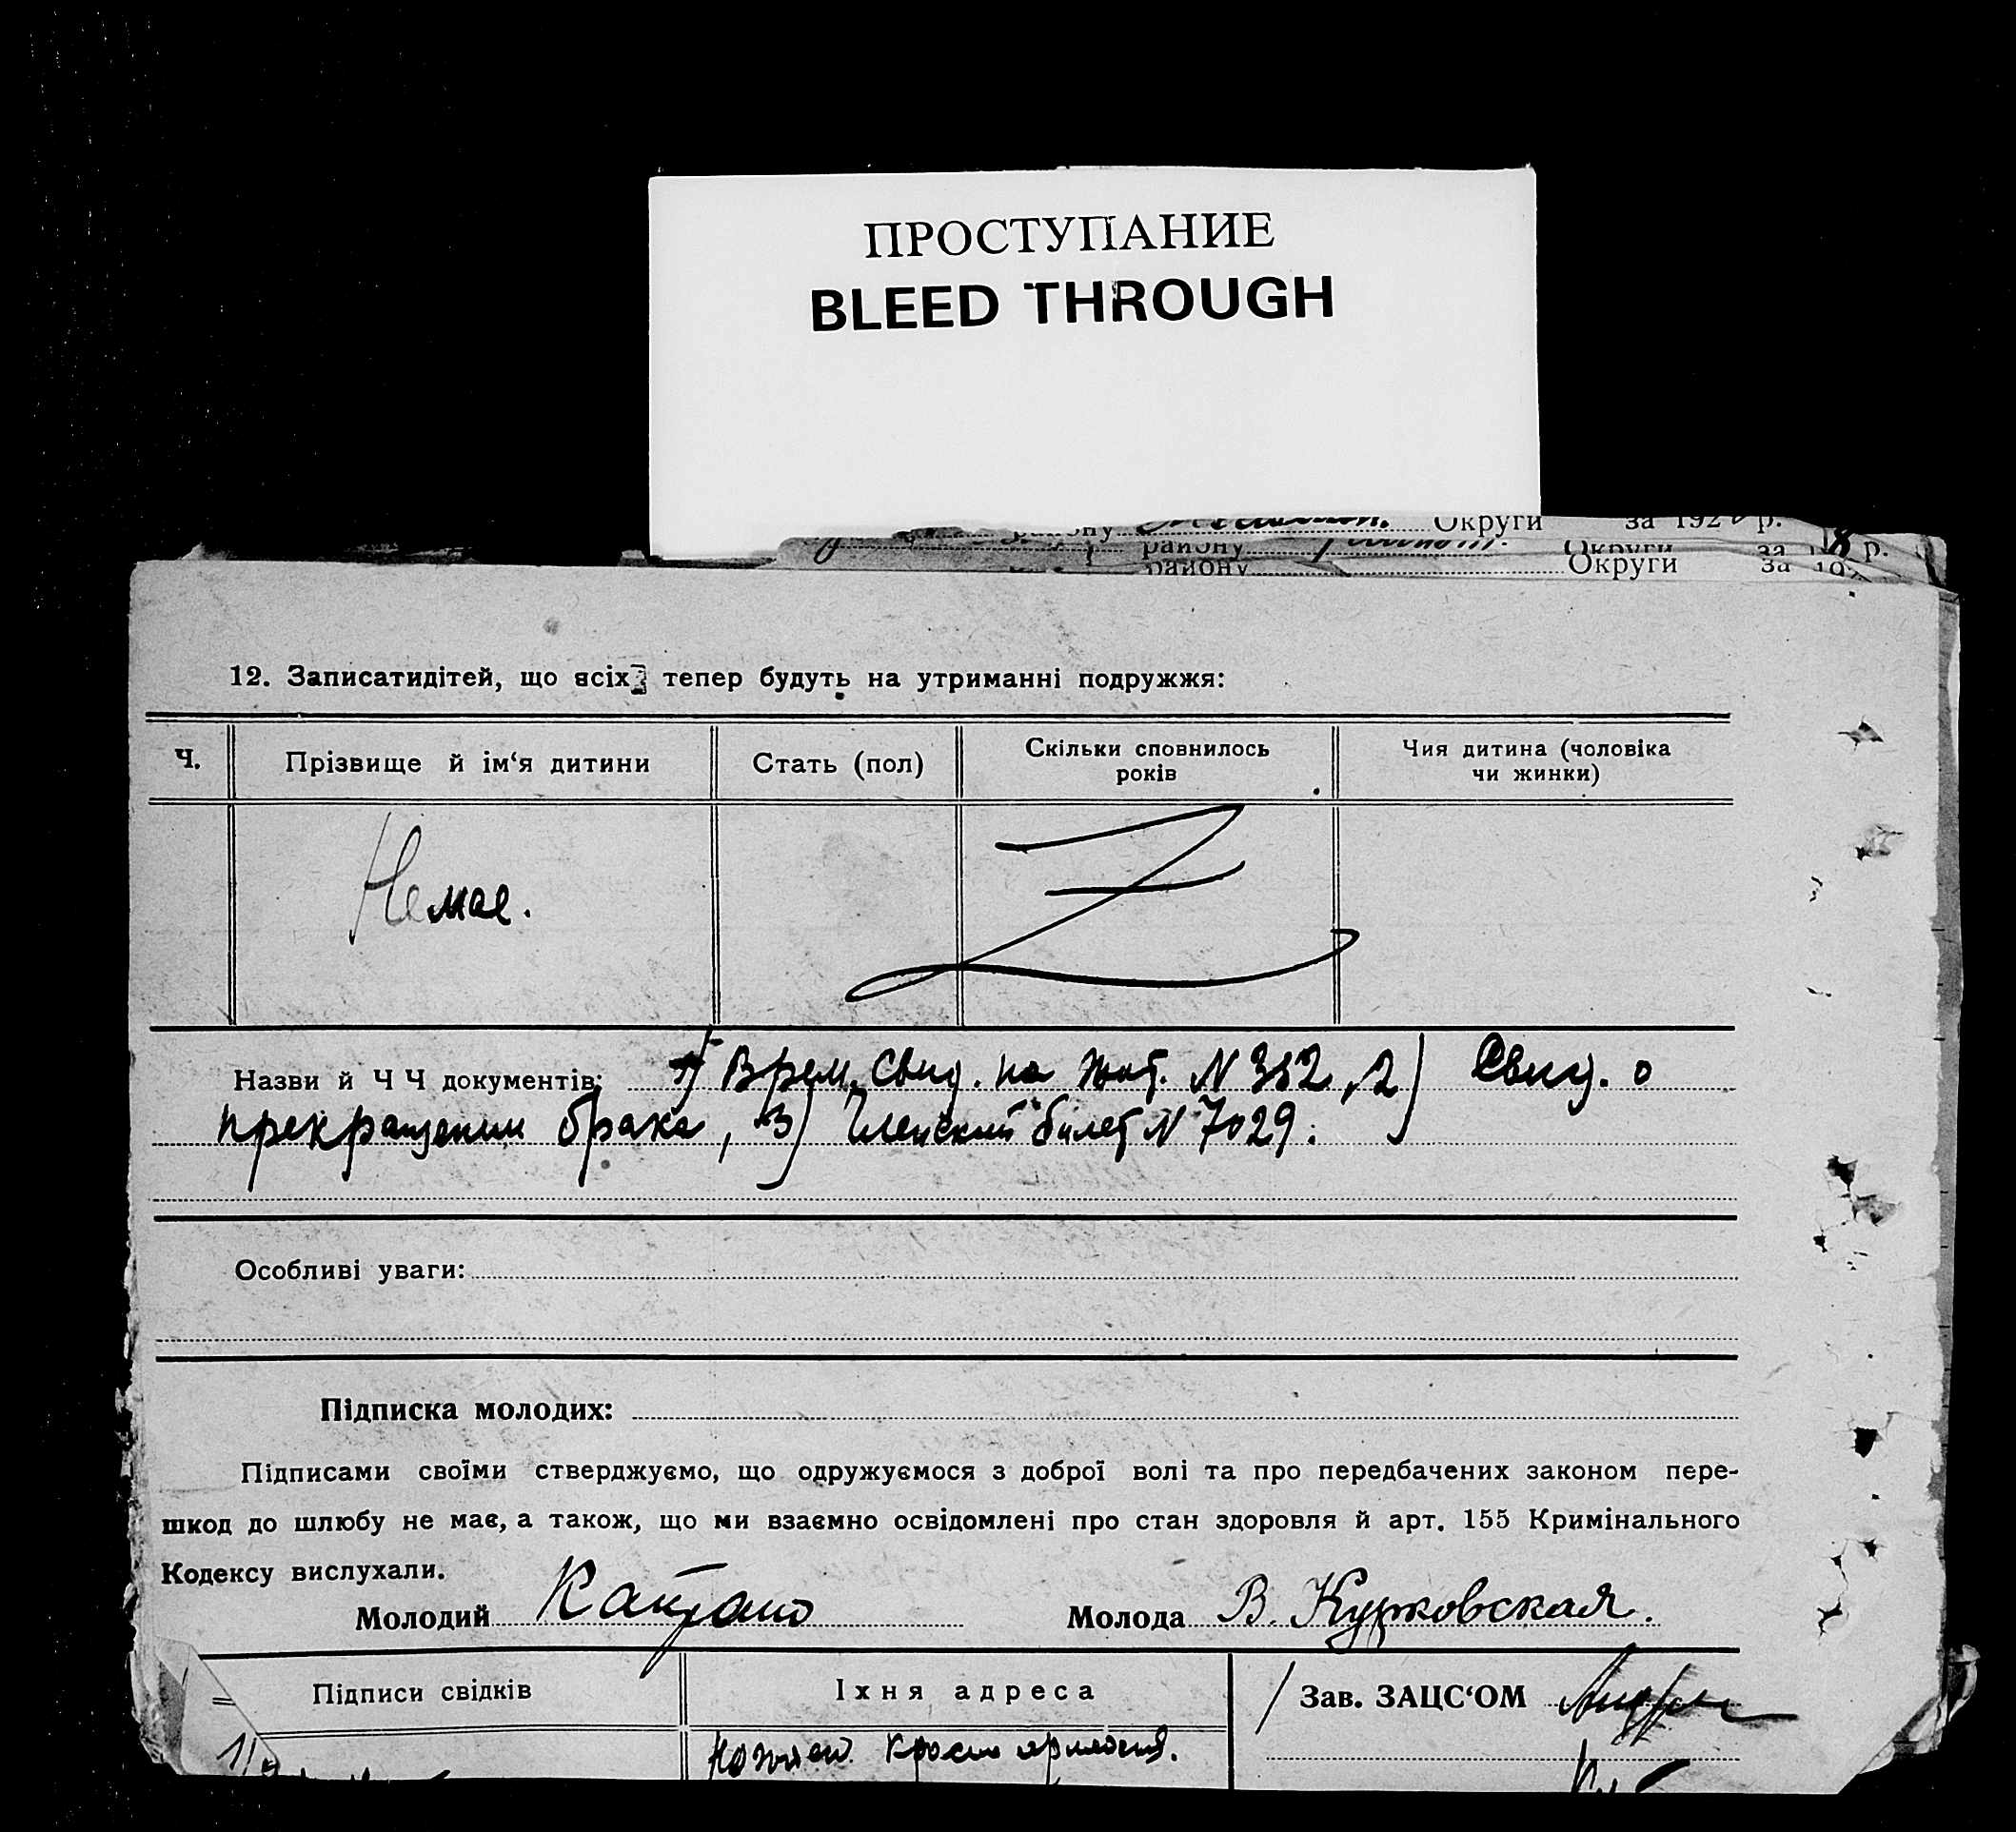 ПРОСТУПАНИЕ
BLEED THROUGH
Округи за 192 р.
району Округи за 8 р.
району Округи за 19
12. Записатидітей, що всіх тепер будуть на утриманні подружжя:
Ч. Прізвище й ім‘я дитини Стать (пол) Скільки сповнилось років Чия дитина (чоловіка чи жинки)
Немає.
Назви й Ч Ч документів: 1) Врем. Свид. на жит. N 352, 2) Свид. о
прекращении брака, 3) Членский билет N 7029.
Особливі уваги:
Підписка молодих:
Підписами своїми стверджуємо, що одружуємося з доброї волі та про передбачених законом пере-
шкод до шлюбу не має, а також, що ми взаємно освідомлені про стан здоровля й арт. 155 Кримінального
Кодексу вислухали.
Молодий Молода В. Курковская.
Підписи свідків Їхня адреса Зав. ЗАЦС‘ОМ
1)